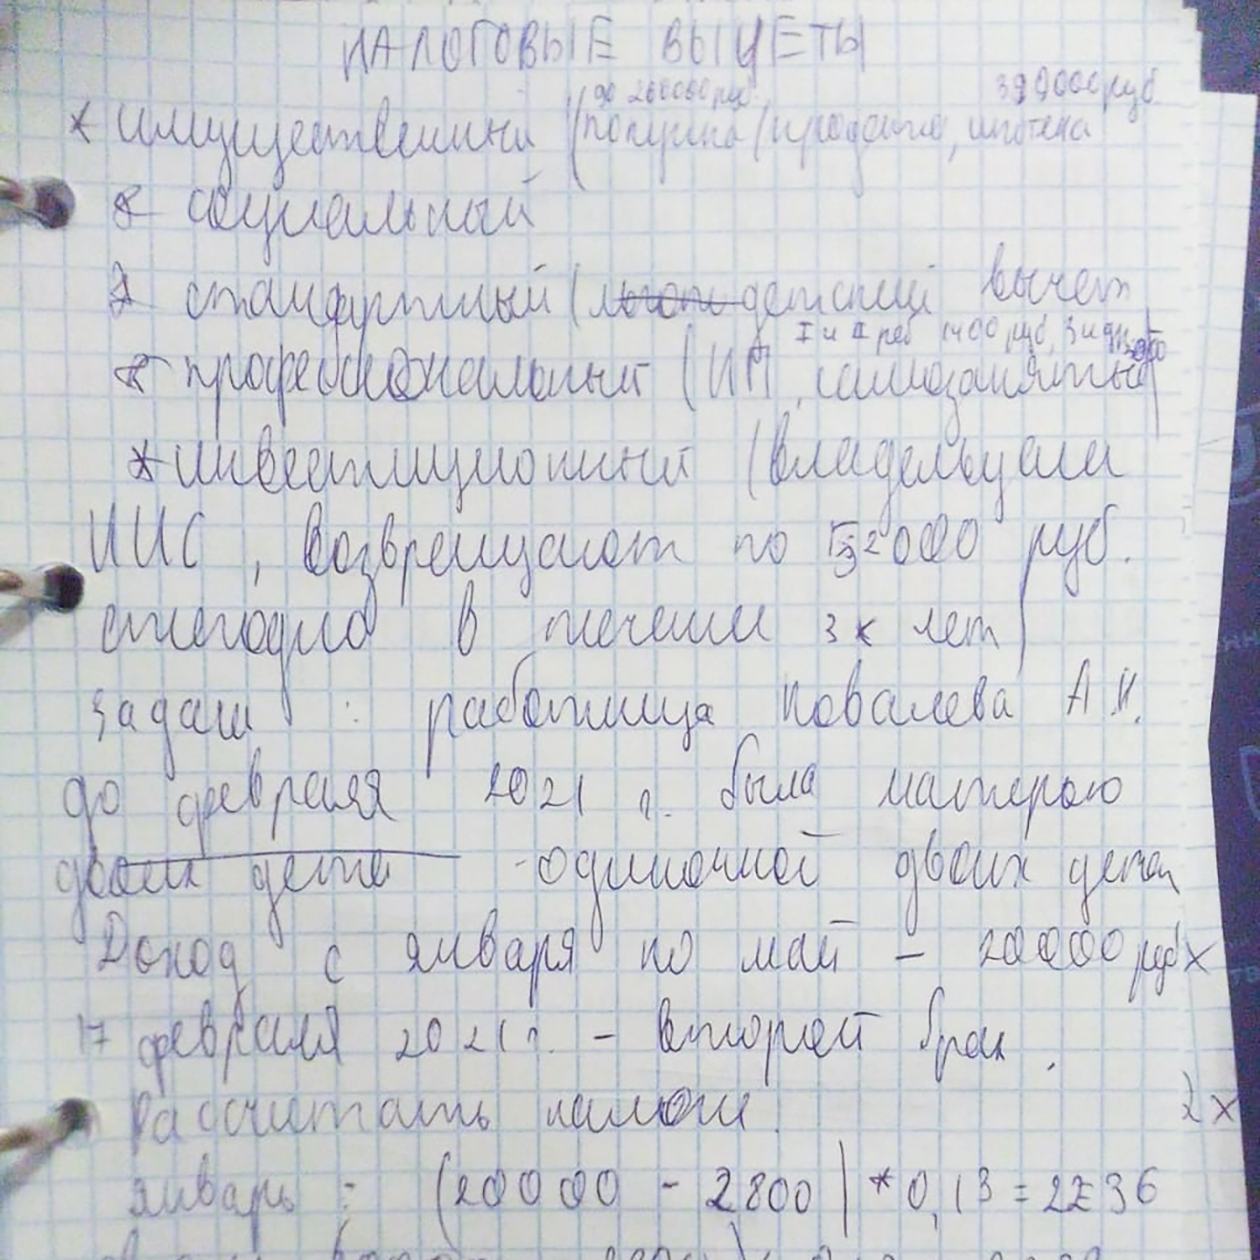 НАЛОГОВЫЕ ВЫЧЕТЫ
до 260000 руб. 390000 руб
* имущественный (покупка/продажа, ипотека
* социальный
* стандартный (детский вычет
I и II реб 1400 руб, 3 и
* профессиональный (ИП, самозанятые)
* инвестиционный (владельцам
ИИС, возвращают по 52000 руб.
ежегодно в течении 3х лет)
Задача: работница Ковалева А.И.
до февраля 2021 г. была матерью
двоих дете -одиночкой двоих детей
Доход с января по май - 20000 руб
17 февраля 2021 г. - второй брак.
Рассчитать налоги.
2х
январь: (20000 - 2800) * 0,13 = 2236